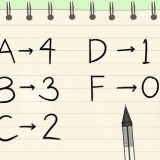 A→4 D→1
B→3 F→0
C→2